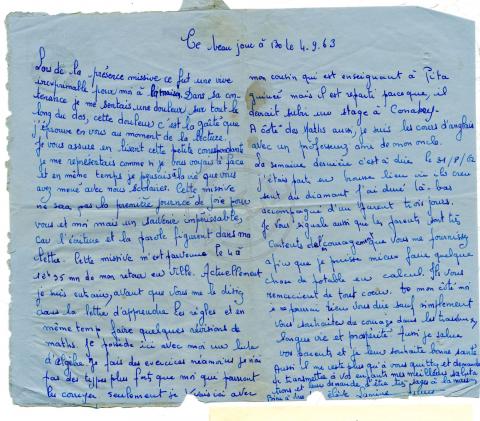 Ce beau jour à Bo le 4.9.63
Lors de la présence missive ce fut une vive
inexprimable pour moi à la maison. Dans sa con
tenance je me sentais une douleur sur tout le
long du dos, cette douleur c'est la gaîté que
j'éprouve en vous au moment de la lecture.
Je vous assure en lisant cette petite correspondance
je me représentais comme si je vous voyais en face
Et en même temps je pensais à la vie que vous
avez mené avec nous scolaires. Cette missive
ne sera pas la première journée de joie pour
vous et moi mais un sauveur impérissable,
car l'écriture et la parole figurent dans ma
lettre. Cette missive m'est parvenue le 4 à
18h 35 mn de mon retour en ville. Actuellement
je suis entrain, avant que vous me le disiez
dans la lettre d'apprendre les règles et en
même temps faire quelques révisions de
maths. Je possède ici avec moi un livre
d'algèbre. Je fais des exercices néanmoins je n'ai
pas des types plus forts que moi qui pourront
les corriger seulement je révisais ici avec
mon cousin qui est enseignant à Pita
Guinée mais il est reparti parce que, il
devait subir un stage à Conakry.
A côté des Maths aussi, je suis les cours d'anglais
avec un professeur ami de mon oncle.
La semaine dernière c'est à dire le 31/8/62
j'étais parti en bonne lieu vis
sent du diamant j'ai duré là-bas
accompagné d'un parent trois jours.
Je vous signale aussi que les parents sont très
contents des courages que vous me fournissez
afin que je puisse mieux faire quelque
chose de potable en calcul. Ils vous
remercient de tout cœur. De mon côté moi
je pourrai rien vous dire sauf simplement
vous souhaiter du courage dans les travaux,
longue vie et prospérité. Aussi je salue
vos parents et je leur souhaite bonne santé
Aussi il me reste plus qu'à vous quitter et demande
de transmettre à vos enfants mes meilleures saluta
tions et leur demande d'être très sages à la maison
élève Lamine